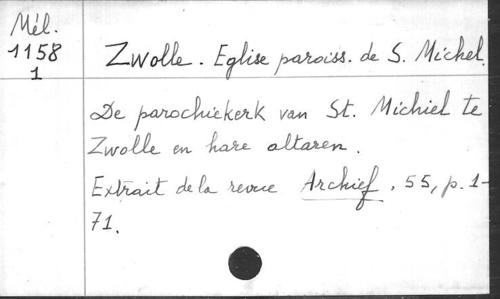 Mél.
1158
1
Zwolle. Eglise paroiss. de S. Michel.
De parochiekerk van St. Michiel te
Zwolle en hare altaren.
Extrait de la revue Archief, 55, p. 1-
71.